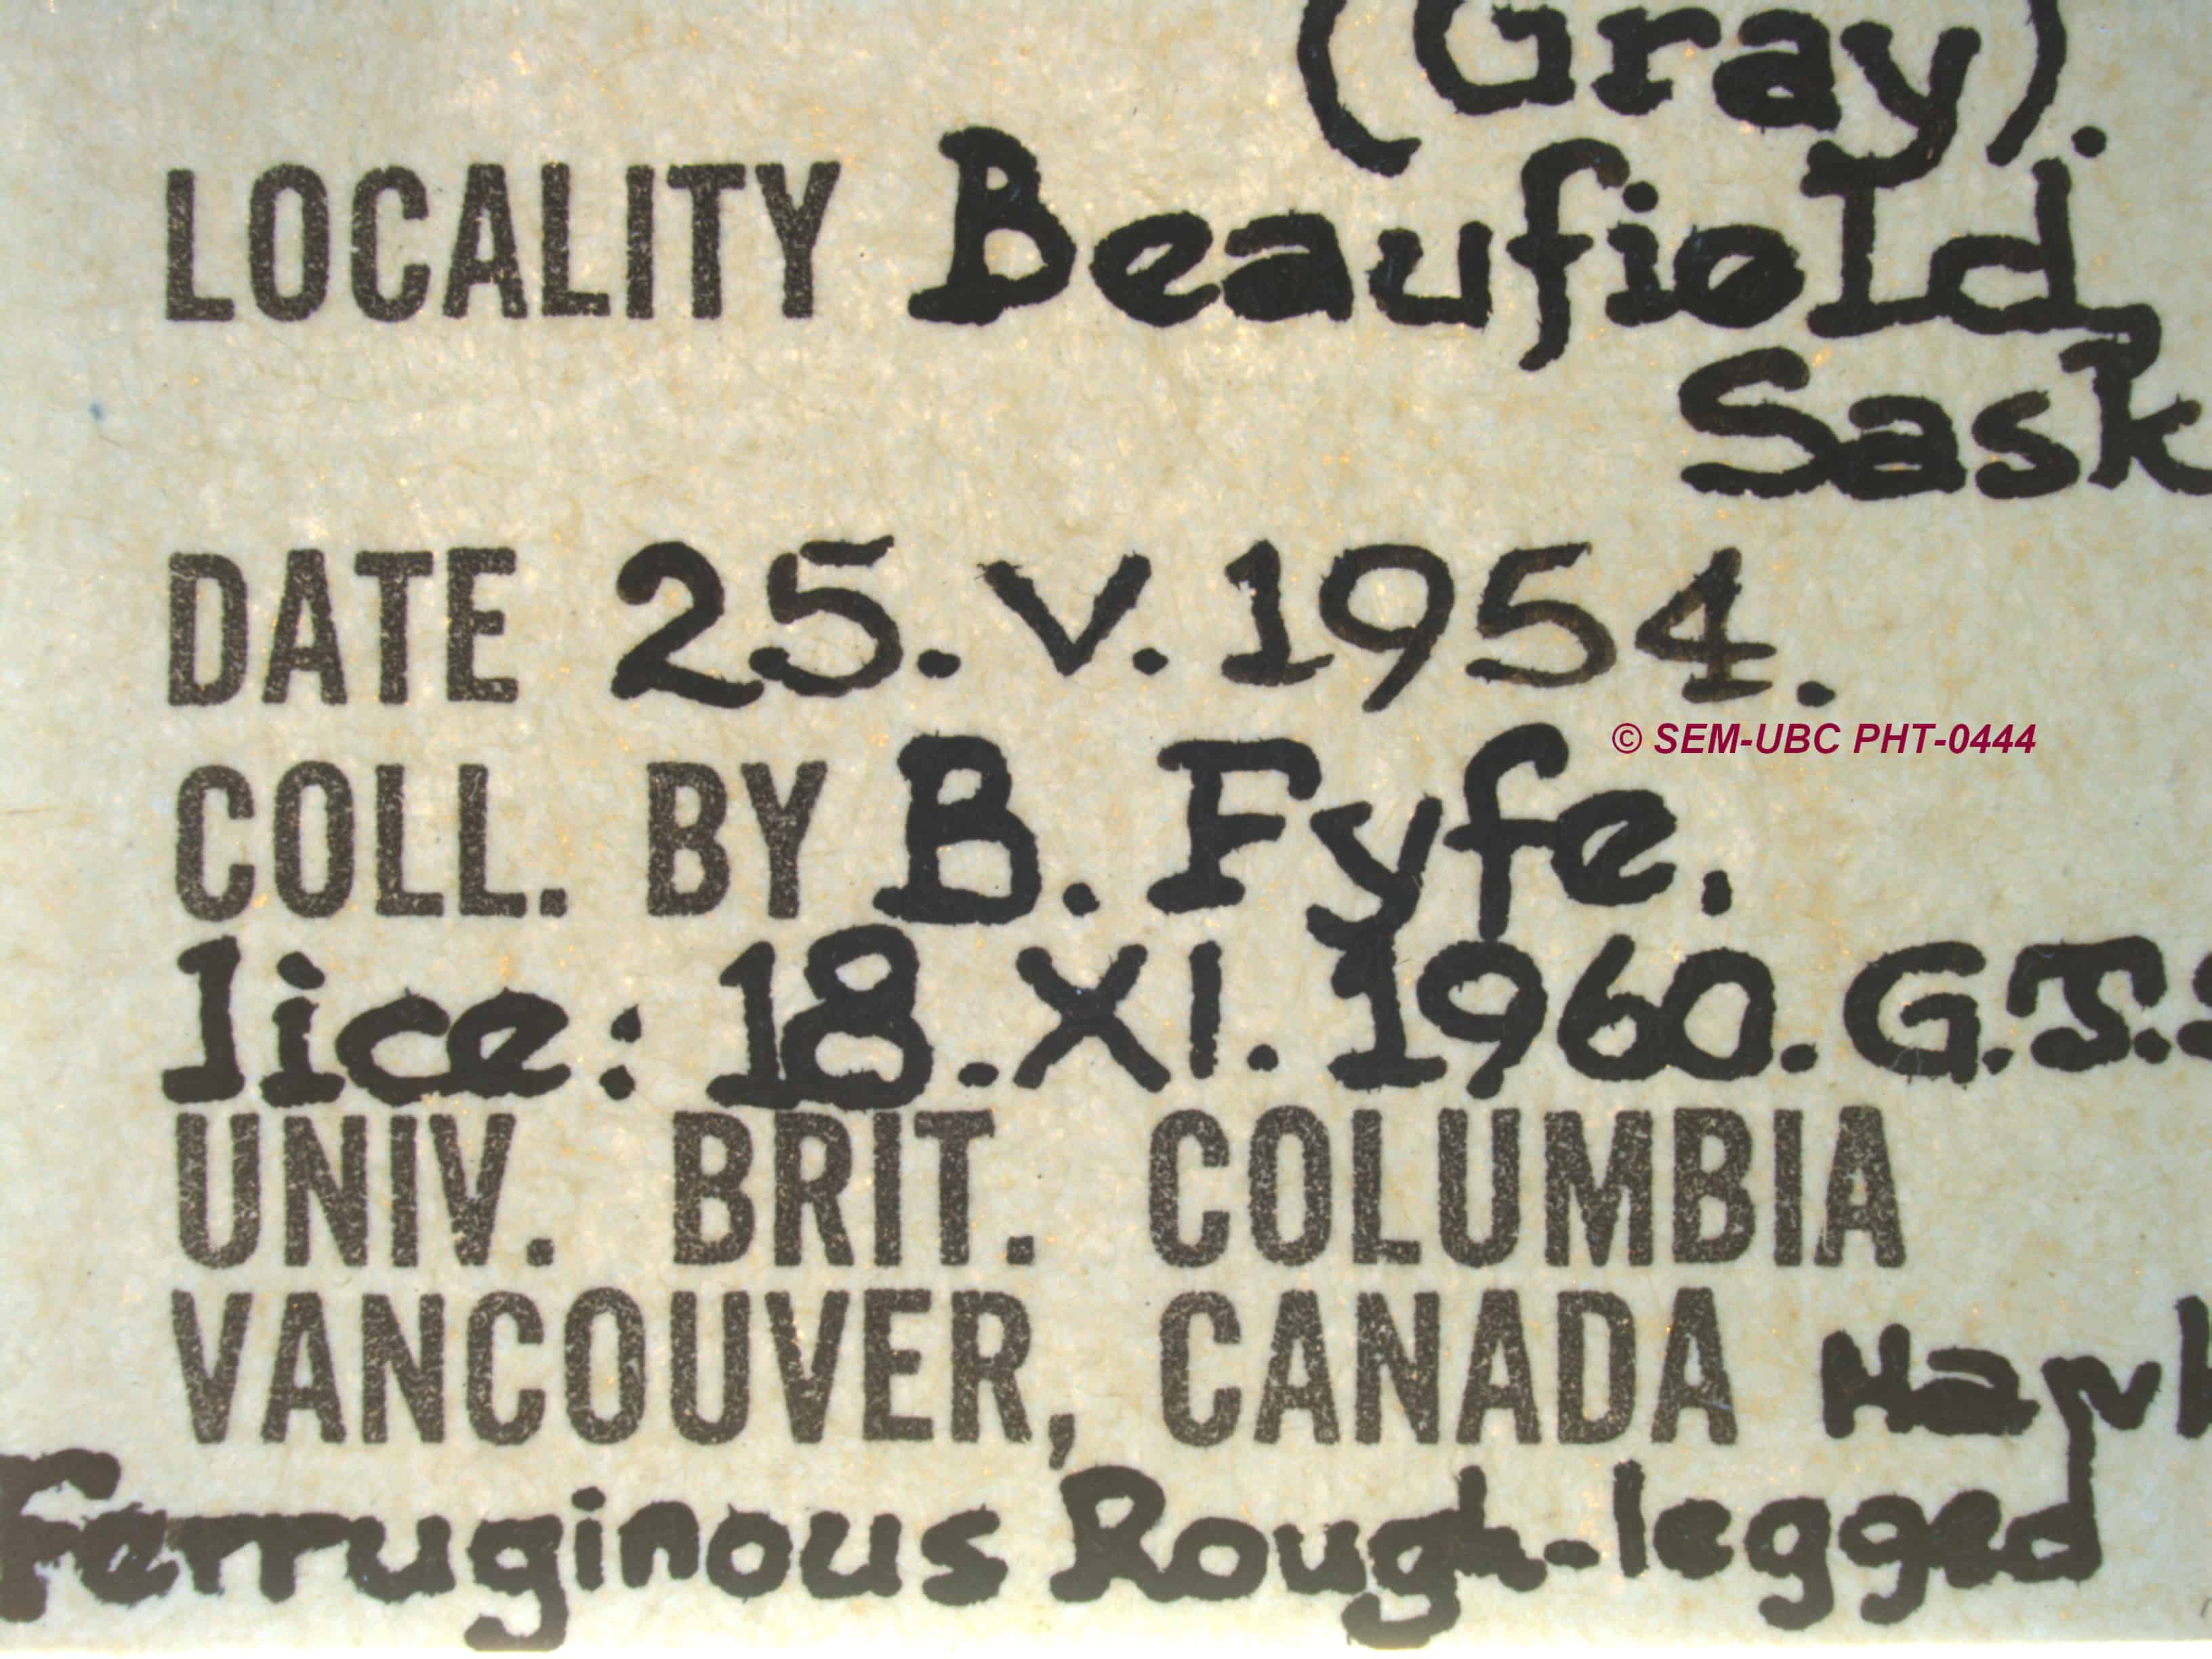 (Gray).
LOCALITY Beaufield,
Sask
DATE 25.V.1954.
© SEM-UBC PHT-0444
COLL. BY B. Fyfe.
lice: 18.XI.1960. G.J.
UNIV. BRIT. COLUMBIA
VANCOUVER, CANADA Hawk
Ferruginous Rough-legged